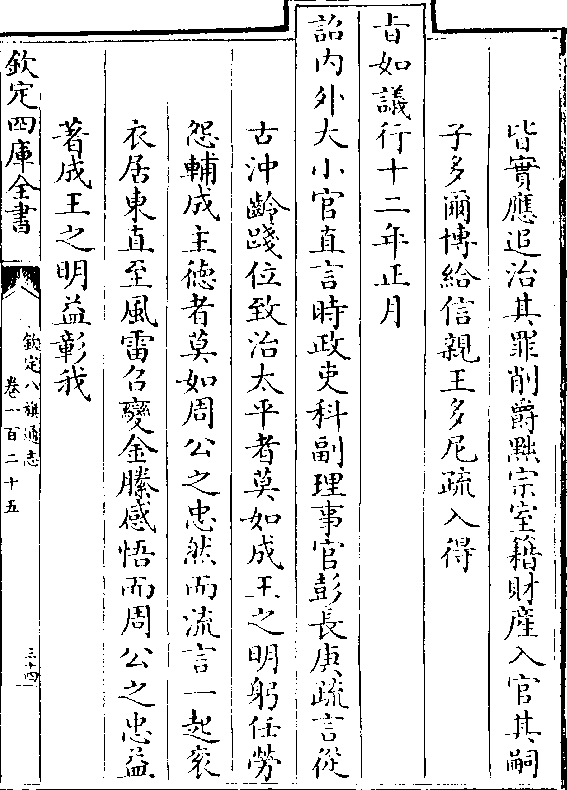 皆實應追治其罪削爵黜宗室籍財産入官其嗣
子多爾博給信親王多尼疏入得
㫖如議行十二年正月
詔内外大小官直言時政吏科副理事官彭長庚疏言從
古沖齡踐位致治太平者莫如成王之明躬任勞
怨輔成主徳者莫如周公之忠然而流言一起衮
衣居東直至風雷召變金縢感悟而周公之忠益
著成王之明益彰我
欽定四庫全書
欽定八旗通志
卷一百二十五
三十四